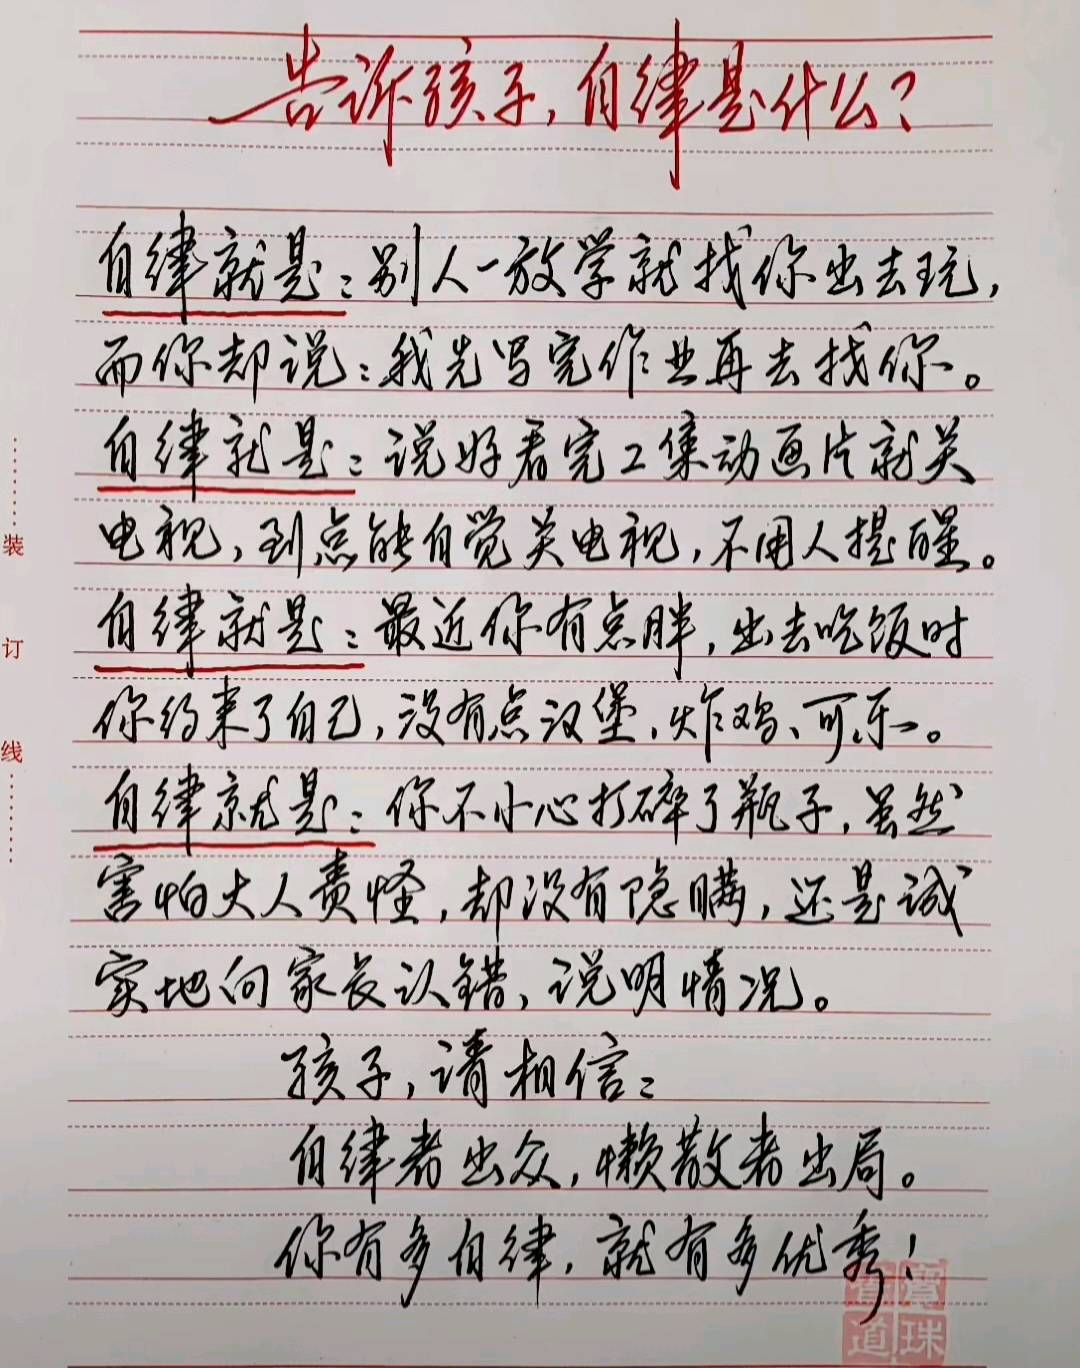 告诉孩子,自律是什么?
自律就是:别人一放学就找你出去玩,
而你却说:我先写完作业再去找你。
自律就是:说好看完2集动画片就关
电视,到点能自觉关电视,不用人提醒。
自律就是:最近你有点胖,出去吃饭时
你约束了自己,没有点汉堡、炸鸡、可乐。
自律就是:你不小心打碎了瓶子,虽然
害怕大人责怪,却没有隐瞒,还是诚
实地向家长认错,说明情况。
孩子,请相信:
自律者出众,懒散者出局。
你有多自律,就有多优秀!
装
订
线